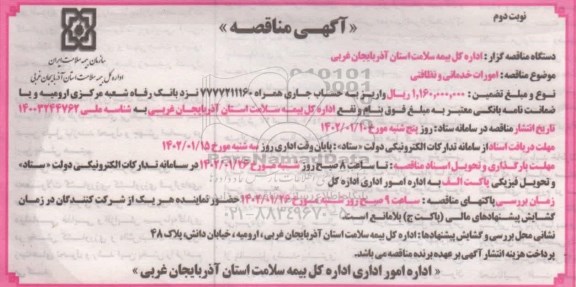 نوبت دوم
« آگهی مناقصه »
سازمان بیمه سلامت ایران
اداره کل بیمه سلامت استان آذربایجان غربی
دستگاه مناقصه گزار : اداره کل بیمه سلامت استان آذربایجان غربی
موضوع مناقصه : امورات خدماتی و نظافتی
نوع و مبلغ تضمین : ۱,۱۶۰,۰۰۰,۰۰۰ ریال واریز به حساب جاری همراه ۷۷۷۷۲۱۱۱۶۰ نزد بانک رفاه شعبه مرکزی ارومیه و یا
ضمانت نامه بانکی معتبر به مبلغ فوق بنام و نفع اداره کل بیمه سلامت استان آذربایجان غربی به شناسه ملی ۱۴۰۰۳۲۴۴۷۶۲
تاریخ انتشار مناقصه در سامانه ستاد : روز پنج شنبه مورخ ۱۴۰۲/۰۱/۱۰
مهلت دریافت اسناد از سامانه تدارکات الکترونیکی دولت «ستاد» : پایان وقت اداری روز سه شنبه مورخ ۱۴۰۲/۰۱/۱۵
مهلت بارگذاری و تحویل اسناد مناقصه : تا ساعت ۸ صبح روز شنبه مورخ ۱۴۰۲/۰۱/۲۶ در سامانه تدارکات الکترونیکی دولت «ستاد»
و تحویل فیزیکی پاکت الف به اداره امور اداری اداره کل
زمان بررسی پاکتهای مناقصه : ساعت ۹ صبح روز شنبه مورخ ۱۴۰۲/۰۱/۲۶ حضور نماینده هر یک از شرکت کنندگان در زمان
گشایش پیشنهادهای مالی (پاکت ج) بلامانع است
نشانی محل بررسی و گشایش پیشنهادها : اداره کل بیمه سلامت استان آذربایجان غربی، ارومیه ، خیابان دانش، پلاک ۴۸
پرداخت هزینه انتشار آگهی بر عهده برنده مناقصه می باشد.
« اداره امور اداری اداره کل بیمه سلامت استان آذربایجان غربی »
۰۲۱-۸۸۳۴۹۶۷۰-۵